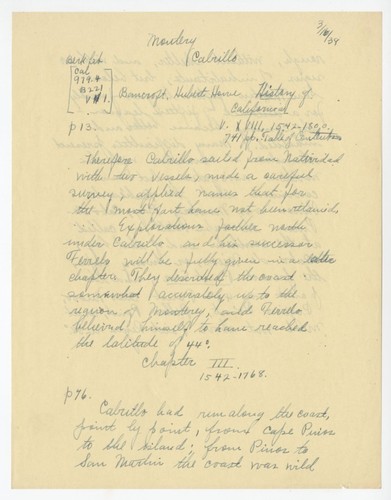 3/16/34
Mowlery
Cabrillo
Berk Pub
Cal
979.4
B221
V 1
Bancroft, Hubert Howe History of
California
p 13. V. XVIII, 1542-1800,
744 pp. Table of Contents
Therefore Cabrillo sailed from Natividad
with two vessels, made a careful
survey, applied names that for
the most part have not been retained
Explorations farther north
under Cabrillo and his successor
Ferrelo will be fully given in a later
chapter. They described the coast
somewhat accurately up to the
region of Monterey, and Ferrelo
believed himself to have reached
the latitude of 44°.
Chapter III
1542-1768.
p 76.
Cabrillo had run along the coast,
point by point, from Cape Pinos
to the island; from Pinos to
San Martin the coast was wild